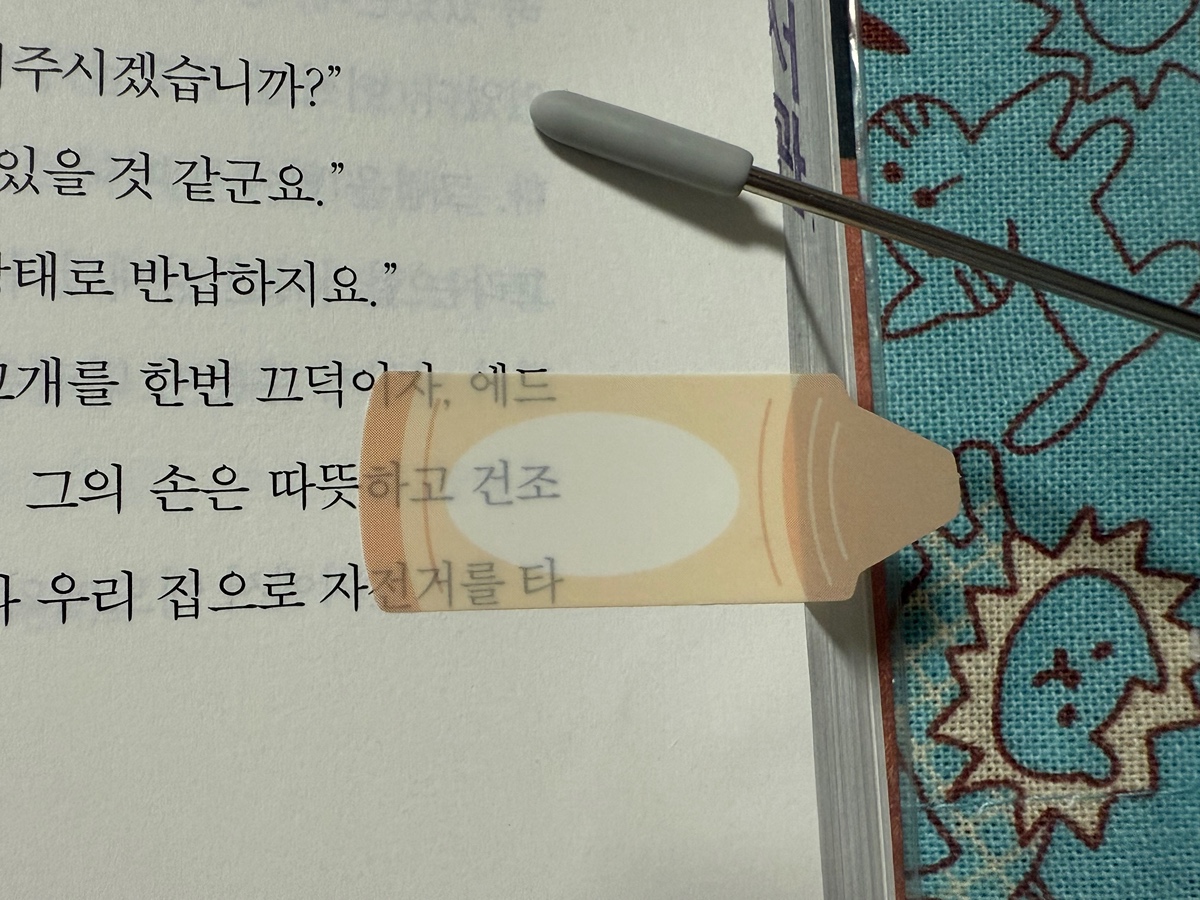 주시겠습니까?”
있을 것 같군요.”
태로 반납하지요.”
고개를 한번 끄덕이자, 에드
그의 손은 따뜻하고 건조
우리 집으로 자전거를 타